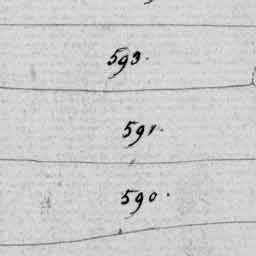 593.
591.
590.